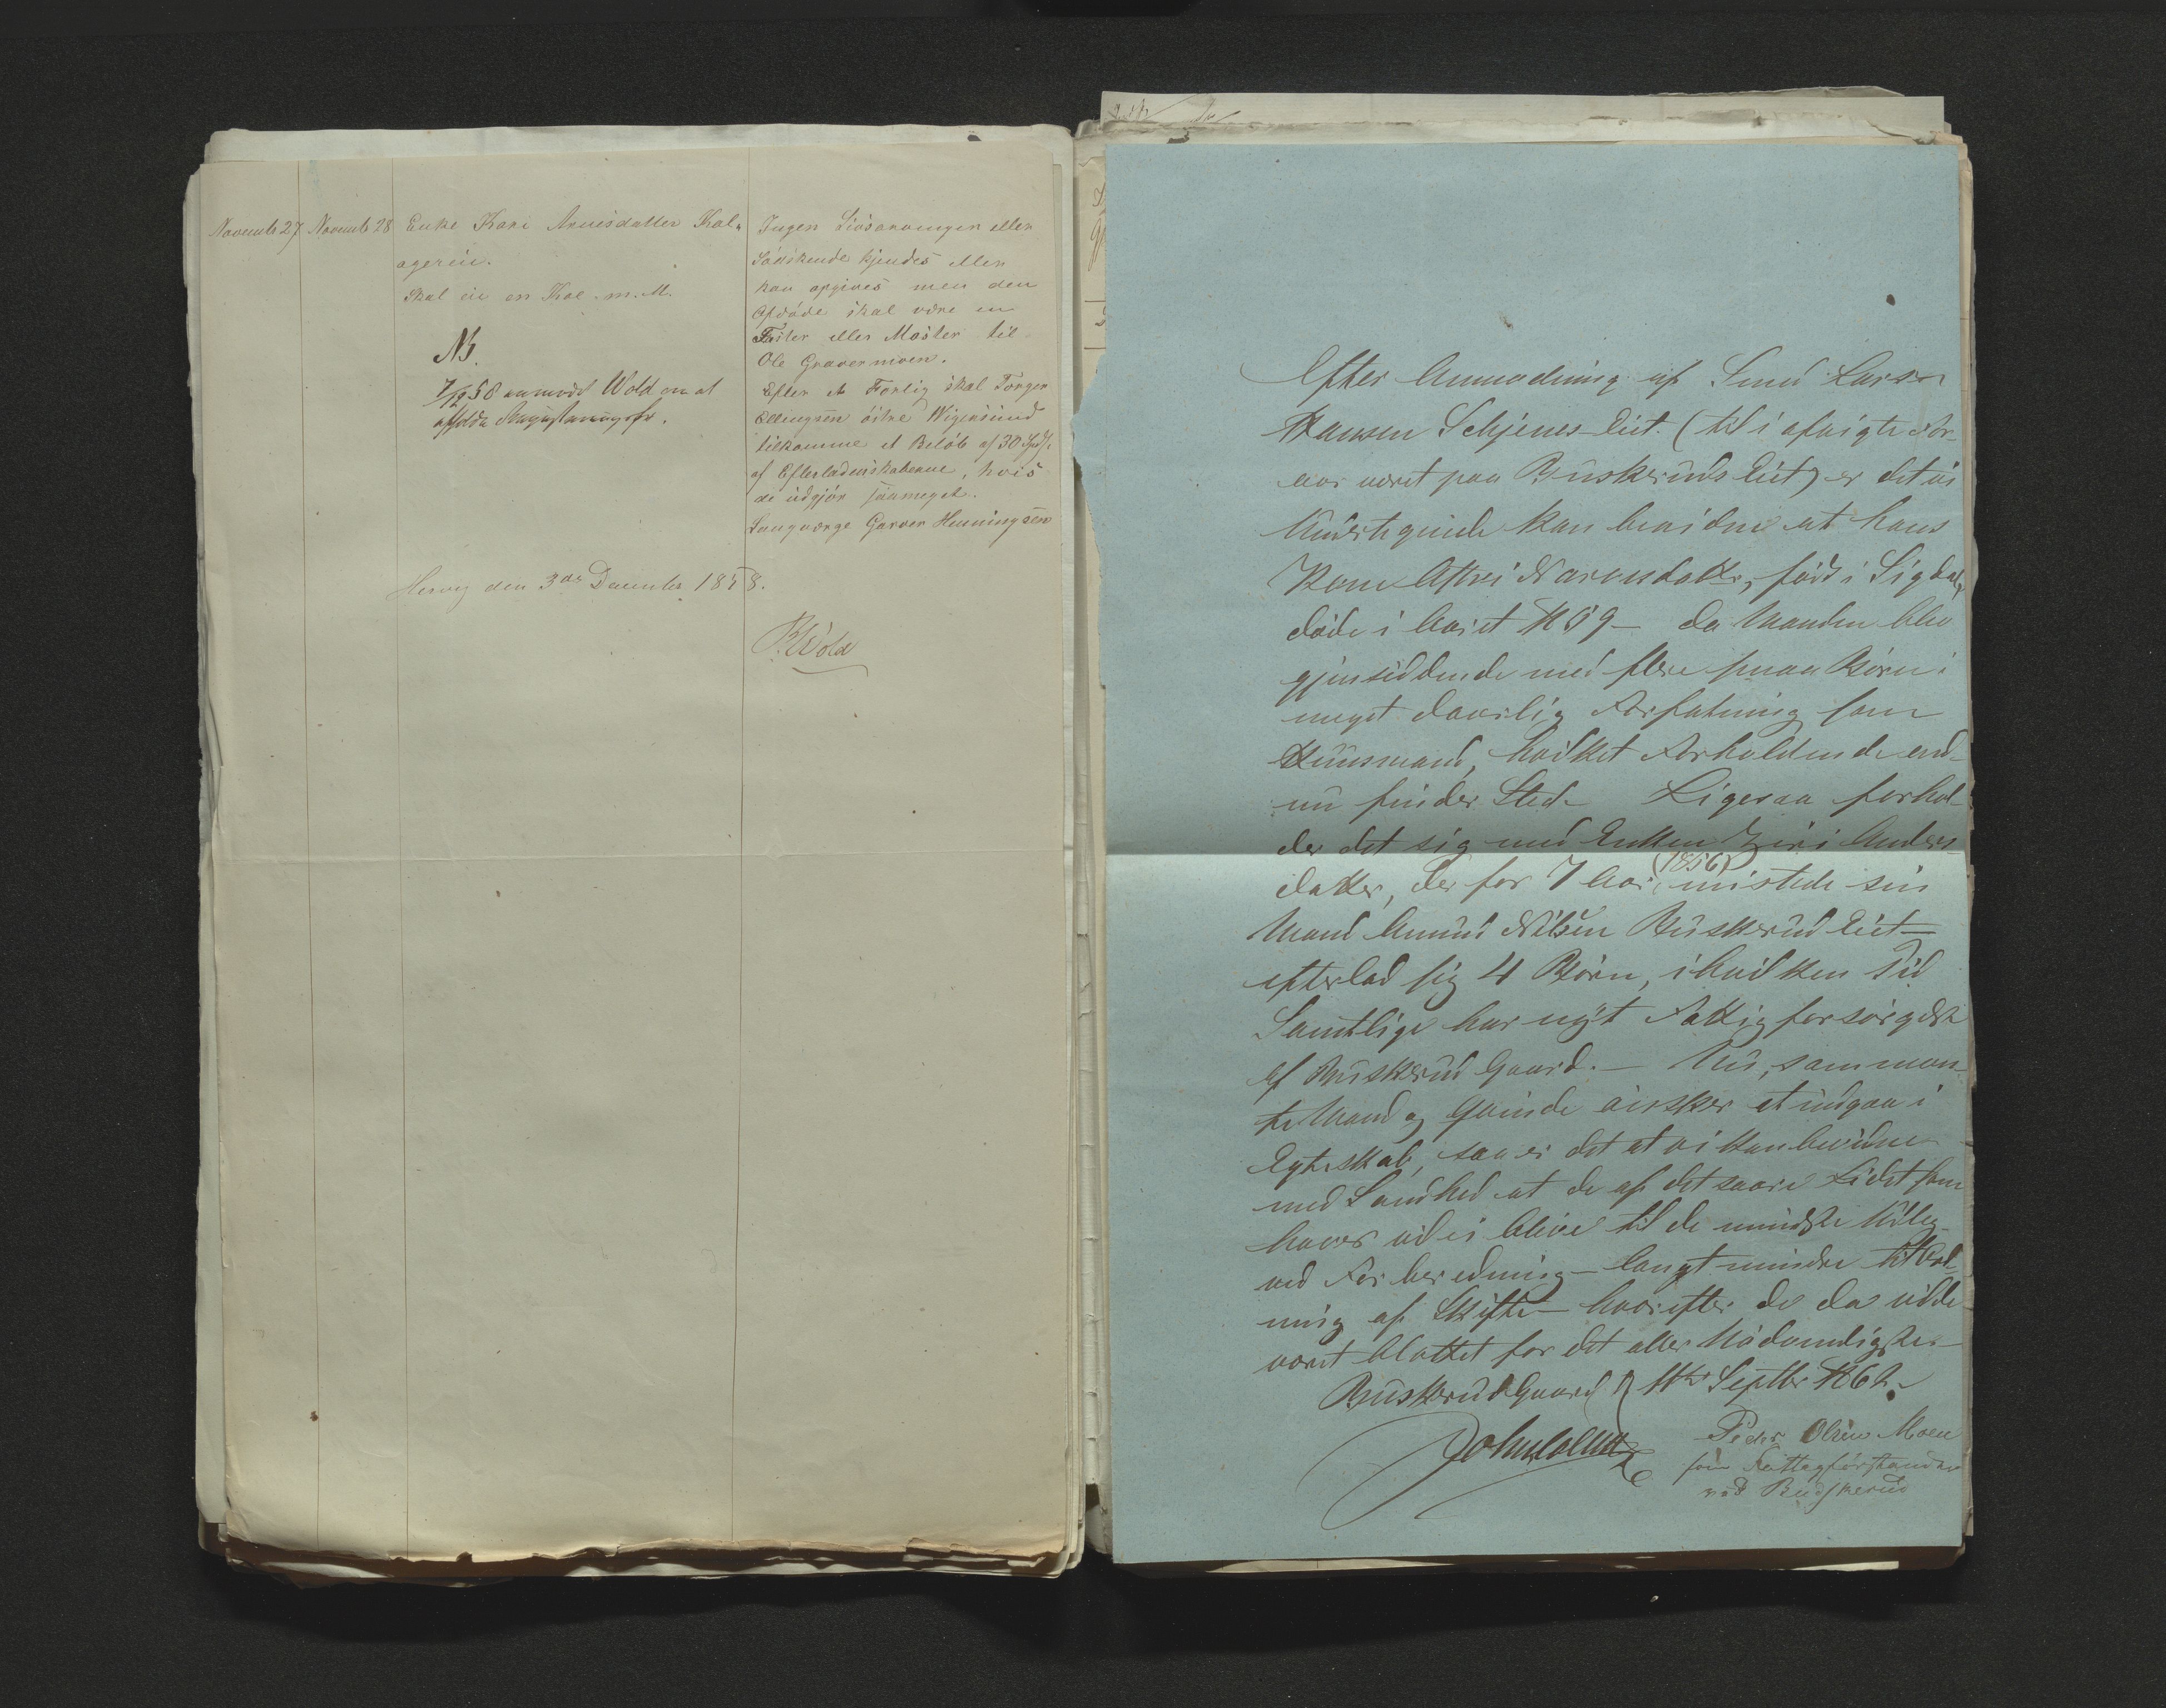 Novemb 27
Novemb 28
Enke Kari Arnesdatter Kol-
agereie.
Skal eie en Koe m. M.
NB.
7/12 58 anmodet Wold om at
afholde
Ingen Livsarvinger eller
Södskende kjendes eller
kan opgives men den
Afdöde skal være en
Faster eller Moster til
Ole Gravermoen.
Efter et Forlig skal Torger
Ellingsen östre Wigersund
tilkomme et Belöb af 30 Spdl.
af Efterladenskaberne, hvis
de udgjör saameget.
Laugværge Garver Henningsen
Hervig den 3de December 1858.
B. Wold
Efter Anmodning af Larsen
Hansen Schjenes-Eiet (til i afvigte For-
aar været paa Buskeruds Eiet) er det vi
Undertegnede kan bevidne at hans
Kone Astri Narvesdatter, född i Sigdal,
döde i Aaret 1859 — da Manden blev
gjensiddende med flere smaa Börn i
meget daarlig Forfatning som
Huusmand, hvilket Forholdende end-
nu finder Sted — Ligesaa forhol-
der det sig med Enken Siri Anders-
datter, der for 7 Aar (1856) mistede sin
Mand Amund Nilsen Buskerud Eiet —
efterlod sig 4 Börn, i hvilken Tid
Samtlige har nydt Fattigforsörgelse
af Buskerud Gaard. — Nu, som men-
te Mand og Qvinde önsker at indgaa i
Egteskab, saa er det at vi kan bevidne
med Sandhed at de af det saare Lidet som
haves vil ei blive til de mindste Udlæg
ved Forberedning — langt mindre til Hold-
ning af Skifte — hvorefter de da vilde
været blottet for det aller Nödvendigste —
Buskerud Gaard 11te Septbr 1862.
John Collett
Peder Olsen Moen
som Fattigforstander
ved Buskerud